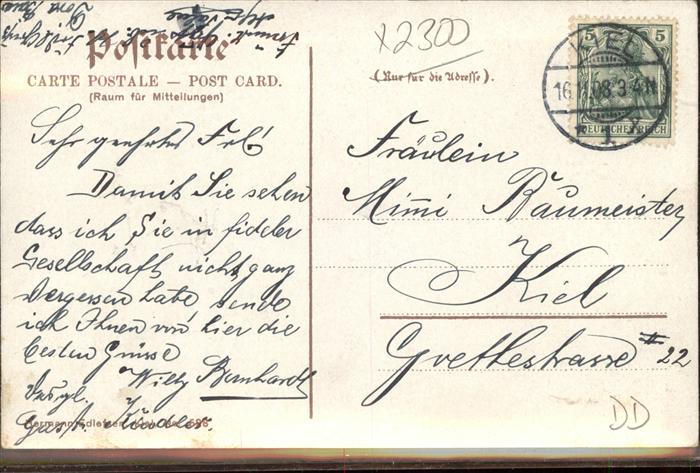 Postkarte
CARTE POSTALE — POST CARD.
(Raum für Mitteilungen)
(Nur für die Adresse).
x2300
5 5
KIEL
16.11.08.3-4N
DEUTSCHES REICH
Sehr geehrtes Frl!
Damit Sie sehen
dass ich Sie in fideler
Gesellschaft nicht ganz
vergessen habe sende
ich Ihnen von hier die
besten Grüsse
Willy Bernhardt
desgl.
Gust.
Fräulein
Mimi Baumeister
Kiel
Goethestrasse # 22
DD